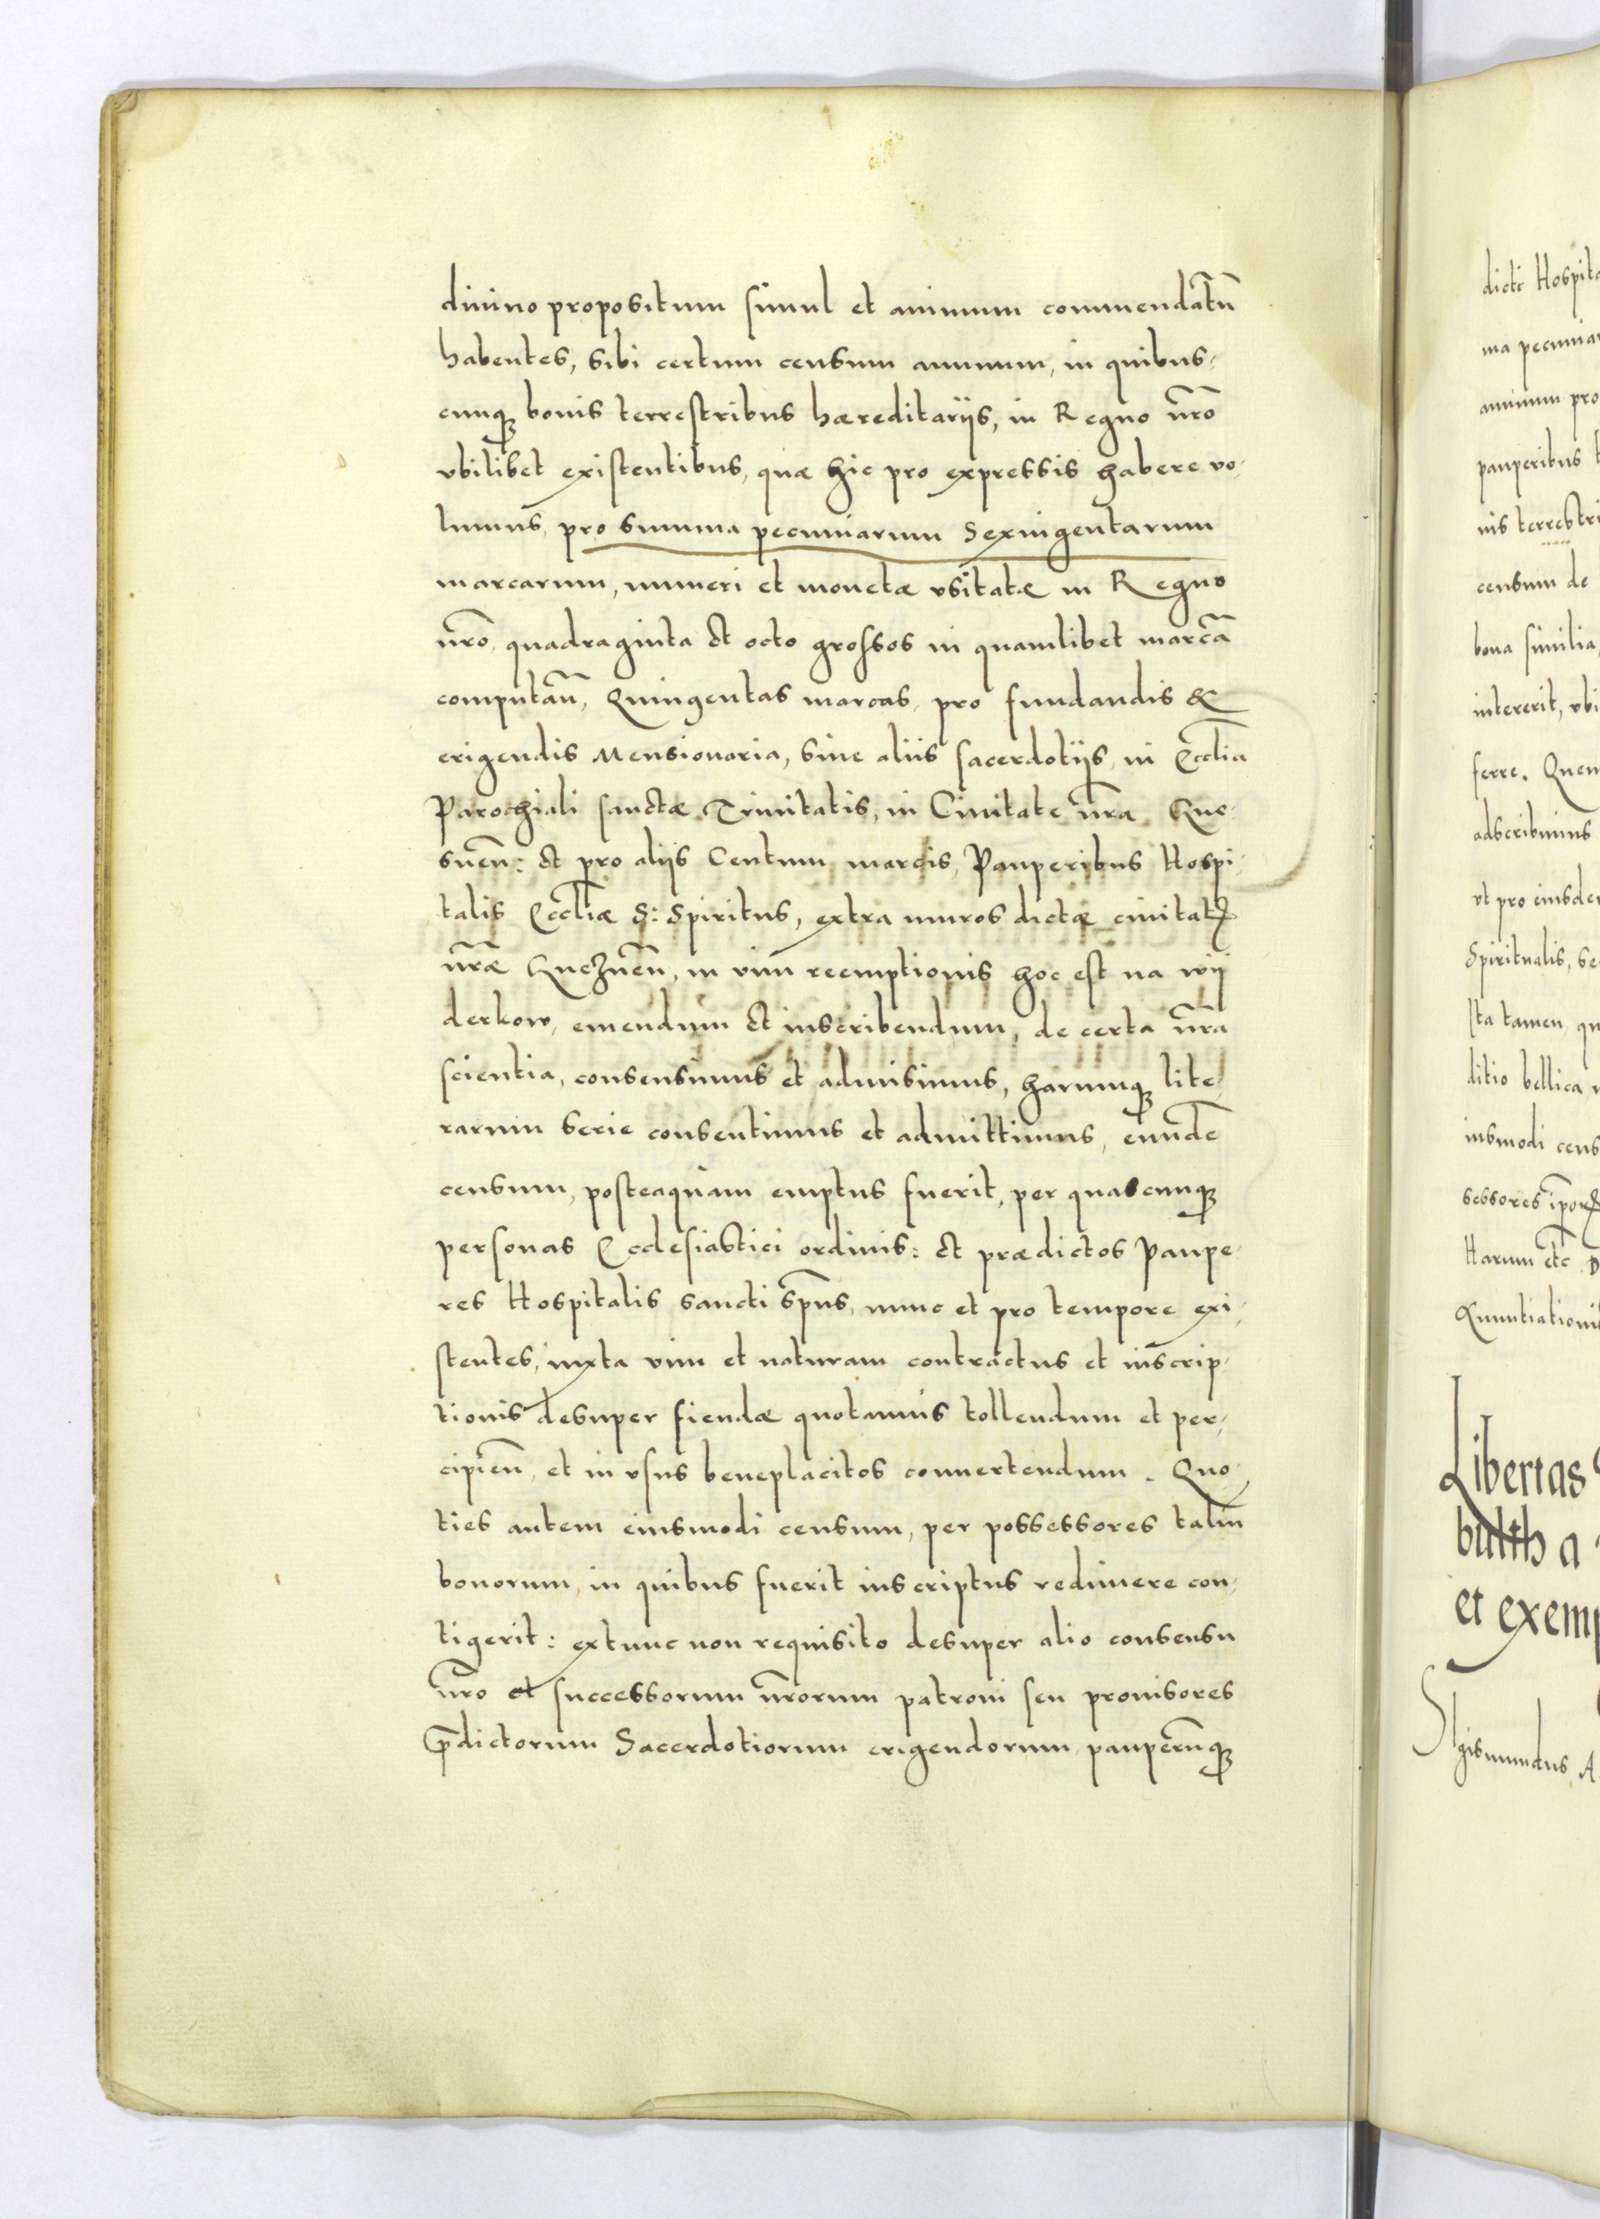 diuino propositum simul et animum commendatū
habentes, sibi certum censum annuum, in quibus,
cunq bonis terrestribus hæreditariis, in Regno nr̄o
vbilibet existentibus, quæ hic pro expressis habere vo,
lumus, pro summa pecuniarum Sexingentarum
marcarum, numeri et monetæ vsitatæ in Regno
nr̄o, quadraginta et octo grossos in quamlibet marcā
computan̄, Quingentas marcas, pro fundandis &
erigendis Mensionaria, siue aliis sacerdotiis, in Eccl̄ia
Parochiali sanctæ Trinitatis, in Ciuitate nr̄a Gne,
snen̄: et pro aliis Centum marcis, Pauperibus Hospi,
talis Eccl̄iæ S: Spiritus, extra muros dictæ ciuitatꝭ
nr̄æ Gneznen̄, in vim reemptionis hoc est na wij
derkow, emendum et inscribendum, de certa nr̄a
scientia, consensimus et admisimus, harumq lite,
rarum serie consentimus et admittimus, eundē
censum, posteaquam emptus fuerit, per quascunq
personas Ecclesiastici ordinis: et prædictos Paupe,
res Hospitalis sancti Sp̄us, nunc et pro tempore exi,
stentes, iuxta vim et naturam contractus et inscrip,
tionis desuper fiendæ quotannis tollendum et per,
cipien̄, et in vsus beneplacitos conuertendum. Quo,
ties autem eiusmodi censum, per possessores taliū
bonorum, in quibus fuerit inscriptus redimere con,
tigerit: extunc non requisito desuper alio consensu
nr̄o et successorum nr̄orum patroni seu prouisores
p̄dictorum Sacerdotiorum erigendorum pauperūq
dicti Hospita
ma pecuniar
annuum pro
pauperibus
nis terrestri
censum de
bona similia,
intererit, vbi
ferre. Quem
adscribimus
vt pro eiusde
Spiritualis, se
Ita tamen qu
ditio bellica
iusmodi cens
sessores ip̄orꝝ
Harum etc D
Enuntiationi
Libertas
bulth a
et exemp
Sigismundus A